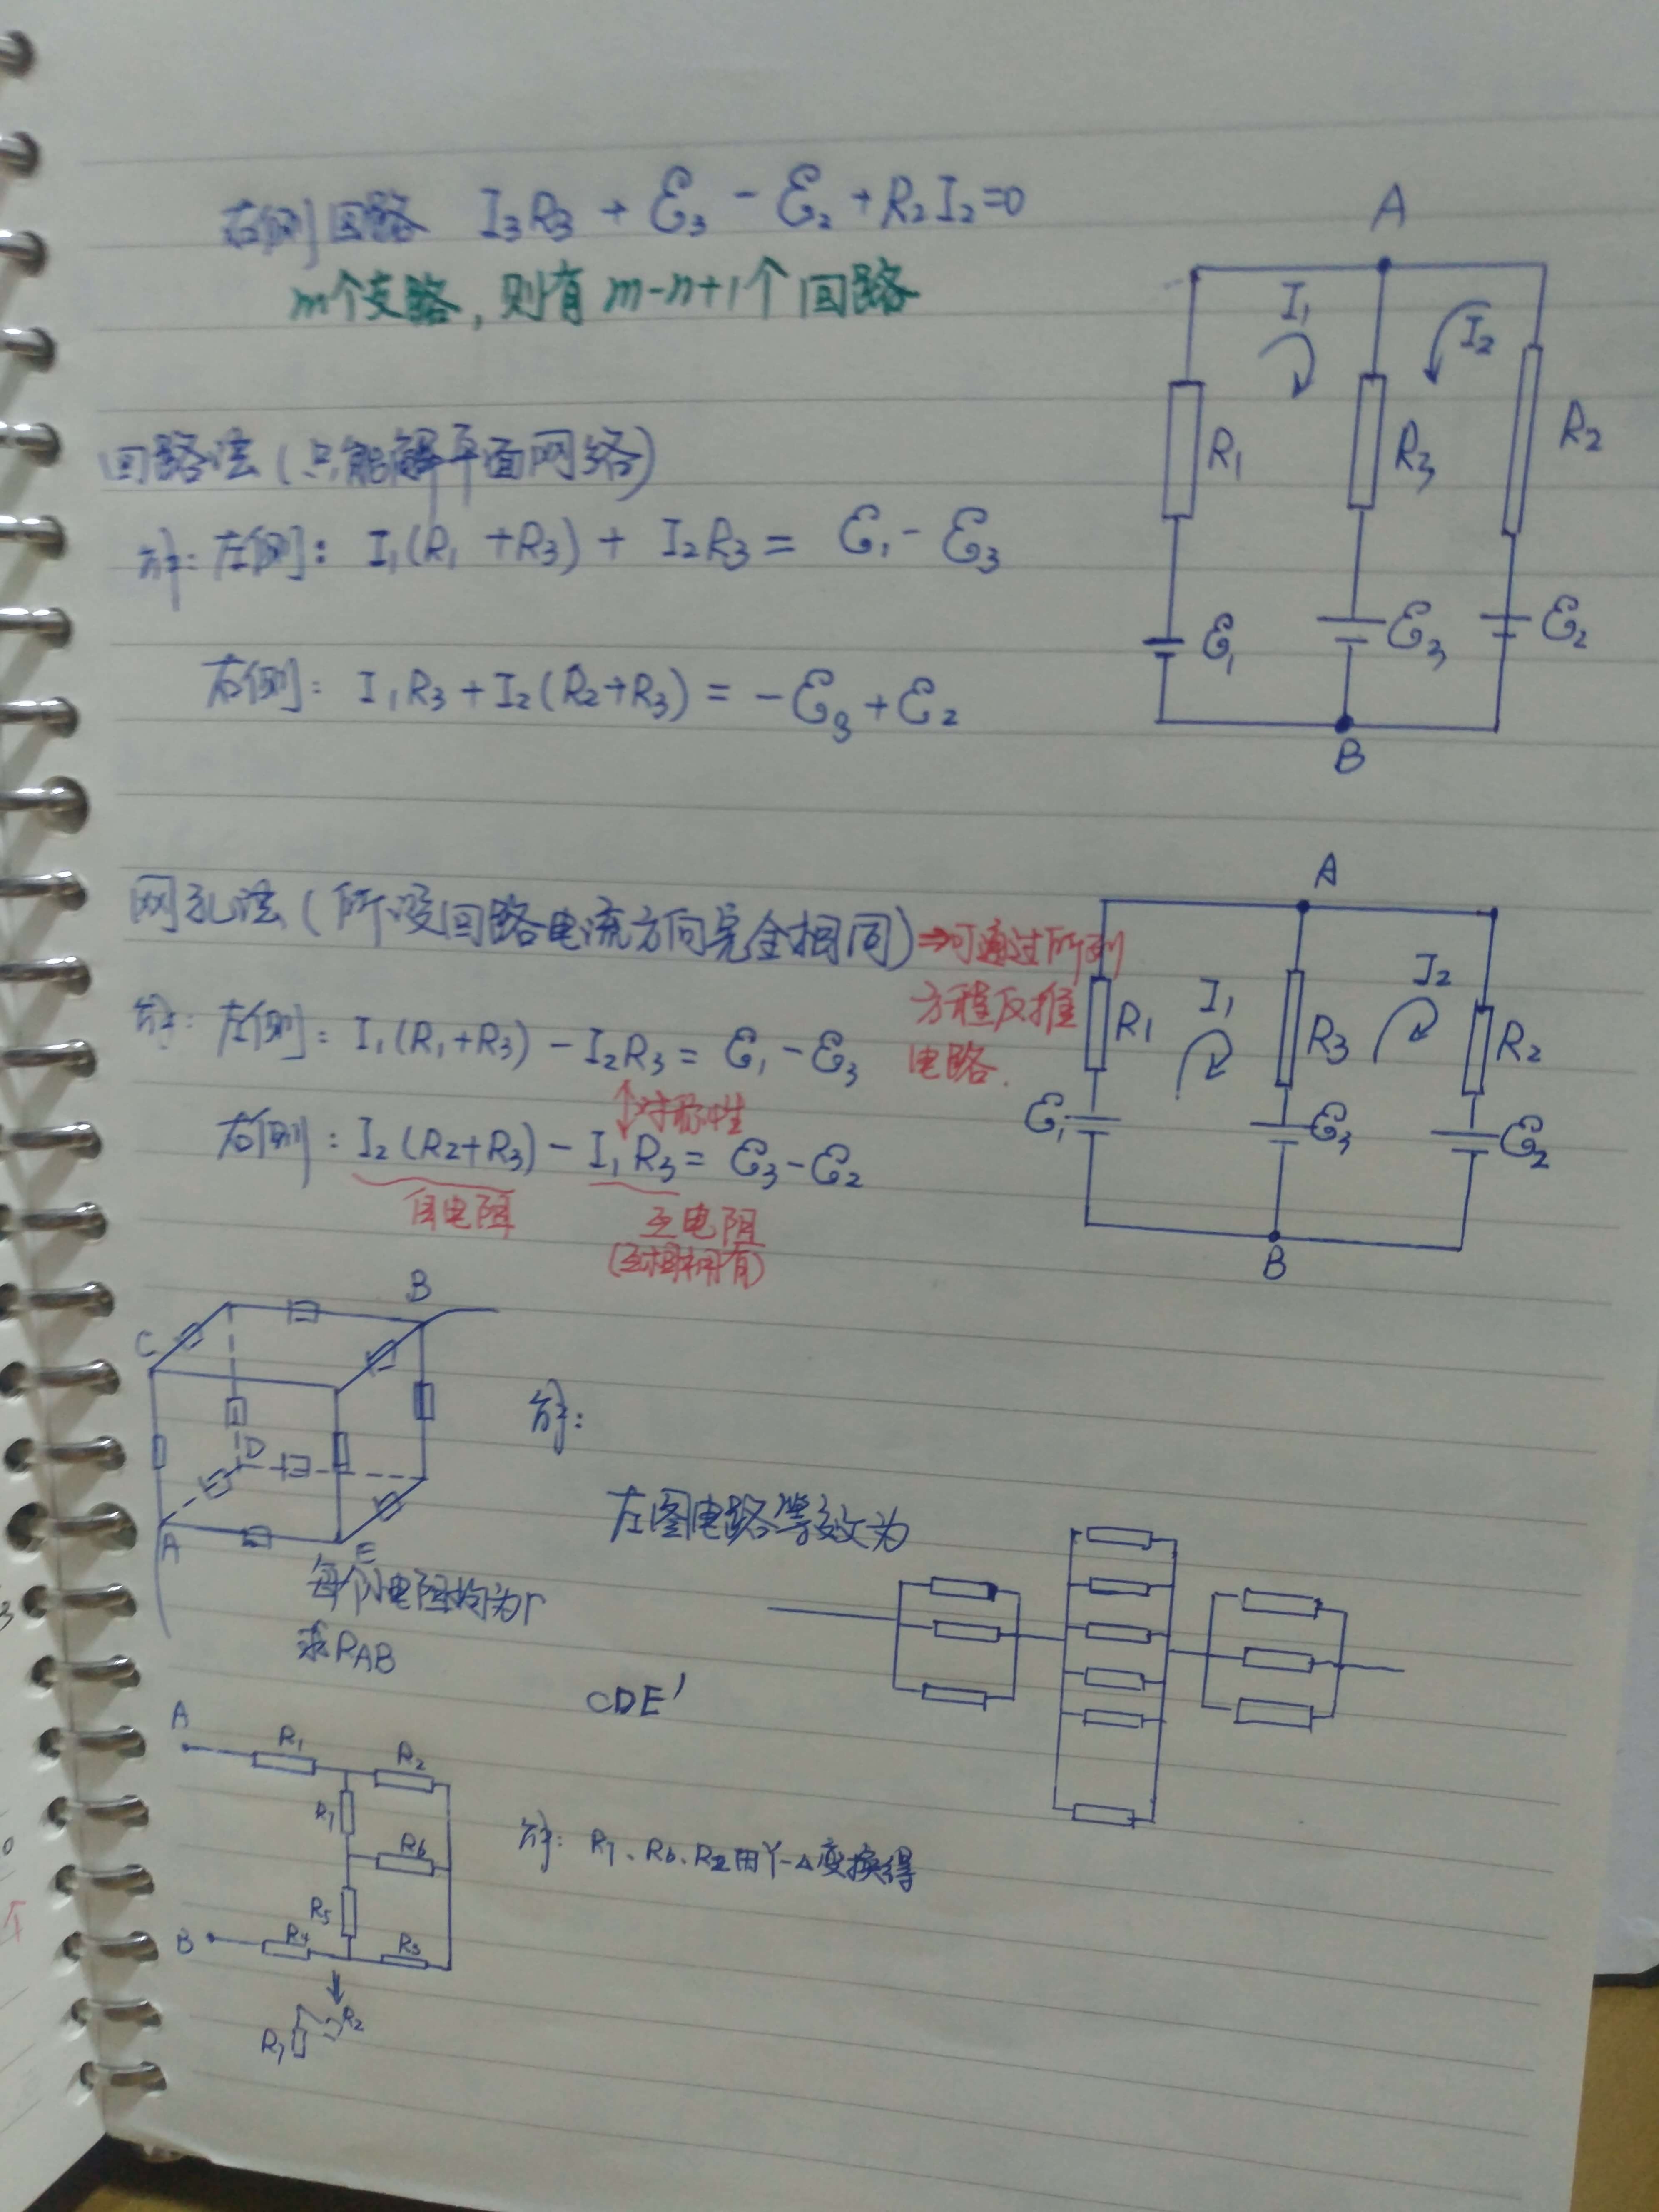 右侧回路 I₃R₃ + ℰ₃ - ℰ₂ + R₂I₂=0
m个支路，则有 m-n+1个 回路
A
I₁
I₂
R₁
R₃
R₂
ℰ₁
ℰ₃
ℰ₂
B
回路法（只能解平面网络）
解：左侧：I₁(R₁ +R₃) + I₂R₃ = ℰ₁- ℰ₃
右侧：I₁R₃ + I₂(R₂+R₃) = -ℰ₃+ℰ₂
网孔法（所设回路电流方向完全相同）⇒可通过所列
方程反推
电路.
解：左侧：I₁(R₁+R₃) - I₂R₃ = ℰ₁ -ℰ₃
↕对称性
右侧：I₂(R₂+R₃) - I₁R₃ = ℰ₃-ℰ₂
自电阻
互电阻
(互相拥有)
A
I₁
I₂
R₁
R₃
R₂
ℰ₁
ℰ₃
ℰ₂
B
B
C
D
A
E
每个小电阻均为r
求RAB
解：
左图电路等效为
CDE'
A
R₁
R₂
R₇
R₆
R₅
B
R₄
R₃
R₇
R₂
解：R₇、R₆、R₂用Y-Δ变换得